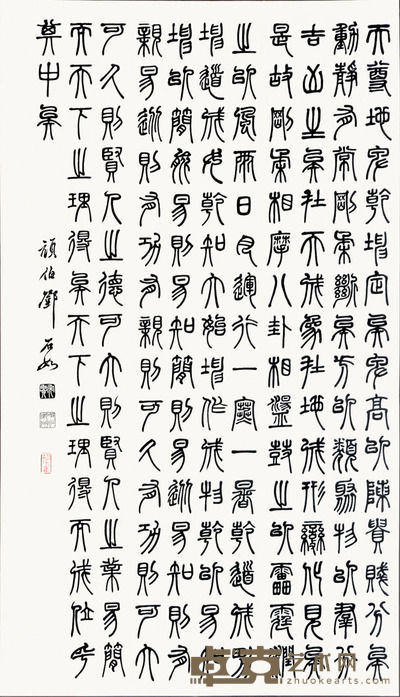 天尊地卑乾坤定矣卑高以陳貴賤分矣
動靜有常剛柔斷矣方以類聚物以羣分
吉凶生矣在天成象在地成形變化見矣
是故剛柔相摩八卦相盪鼓之以雷霆潤
之以風雨日月運行一寒一暑乾道成男
坤道成女乾知大始坤作成物乾以易知
坤以簡能易則易知簡則易從易知則有
親易從則有功有親則可久有功則可大
可久則賢人之德可大則賢人之業易簡
而天下之理得矣天下之理得而成位乎
其中矣
頑伯鄧石如
卓克艺术网
zhuokearts.com